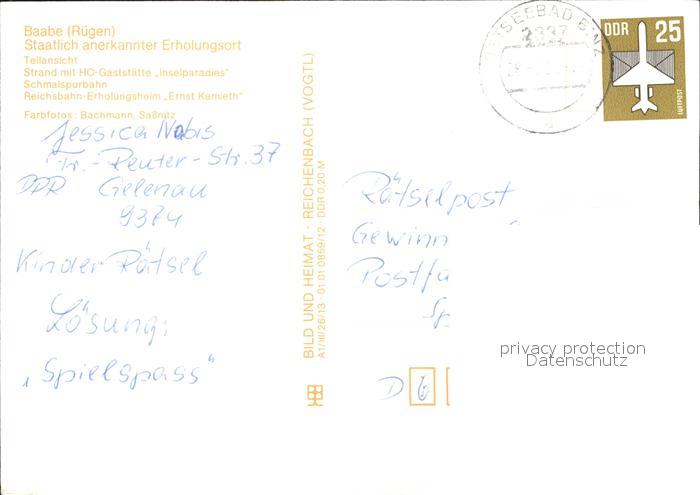 Baabe (Rügen)
Staatlich anerkannter Erholungsort
Teilansicht
Strand mit HO-Gaststätte „Inselparadies"
Schmalspurbahn
Reichsbahn-Erholungsheim „Ernst Kamieth"
Farbfotos: Bachmann, Saßnitz
Jessica Nabis
Fr.-Reuter-Str. 37
DDR Gelenau
9374
Kinder Rätsel
Lösung:
„Spielspass"
BILD UND HEIMAT · REICHENBACH (VOGTL)
A1/III/26/13 · 01 01 0859/12 · DDR 0,20 M
OSTSEEBAD BINZ
2337
DDR 25
LUFTPOST
Rätselpost
Gewinn
Postfa
Sp
D 6
privacy protection
Datenschutz